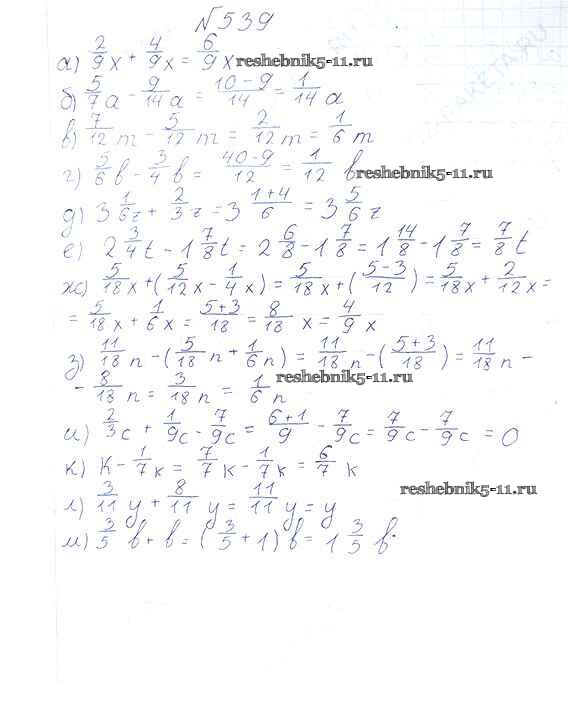 №539
а) 2/9 x + 4/9 x = 6/9 x reshebnik5-11.ru
б) 5/7 a - 9/14 a = (10-9)/14 = 1/14 a
в) 7/12 m - 5/12 m = 2/12 m = 1/6 m
г) 5/6 b - 3/4 b = (40-9)/12 = 1/12 b reshebnik5-11.ru
д) 3 1/6 z + 2/3 z = 3 (1+4)/6 = 3 5/6 z
е) 2 3/4 t - 1 7/8 t = 2 6/8 - 1 7/8 = 1 14/8 - 1 7/8 = 7/8 t
ж) 5/18 x + (5/12 x - 1/4 x) = 5/18 x + ((5-3)/12) = 5/18 x + 2/12 x =
= 5/18 x + 1/6 x = (5+3)/18 = 8/18 x = 4/9 x
з) 11/18 n - (5/18 n + 1/6 n) = 11/18 n - ((5+3)/18) = 11/18 n -
- 8/18 n = 3/18 n = 1/6 n reshebnik5-11.ru
и) 2/3 c + 1/9 c - 7/9 c = (6+1)/9 - 7/9 c = 7/9 c - 7/9 c = 0
к) k - 1/7 k = 7/7 k - 1/7 k = 6/7 k
л) 3/11 y + 8/11 y = 11/11 y = y reshebnik5-11.ru
м) 3/5 b + b = (3/5 + 1) b = 1 3/5 b.